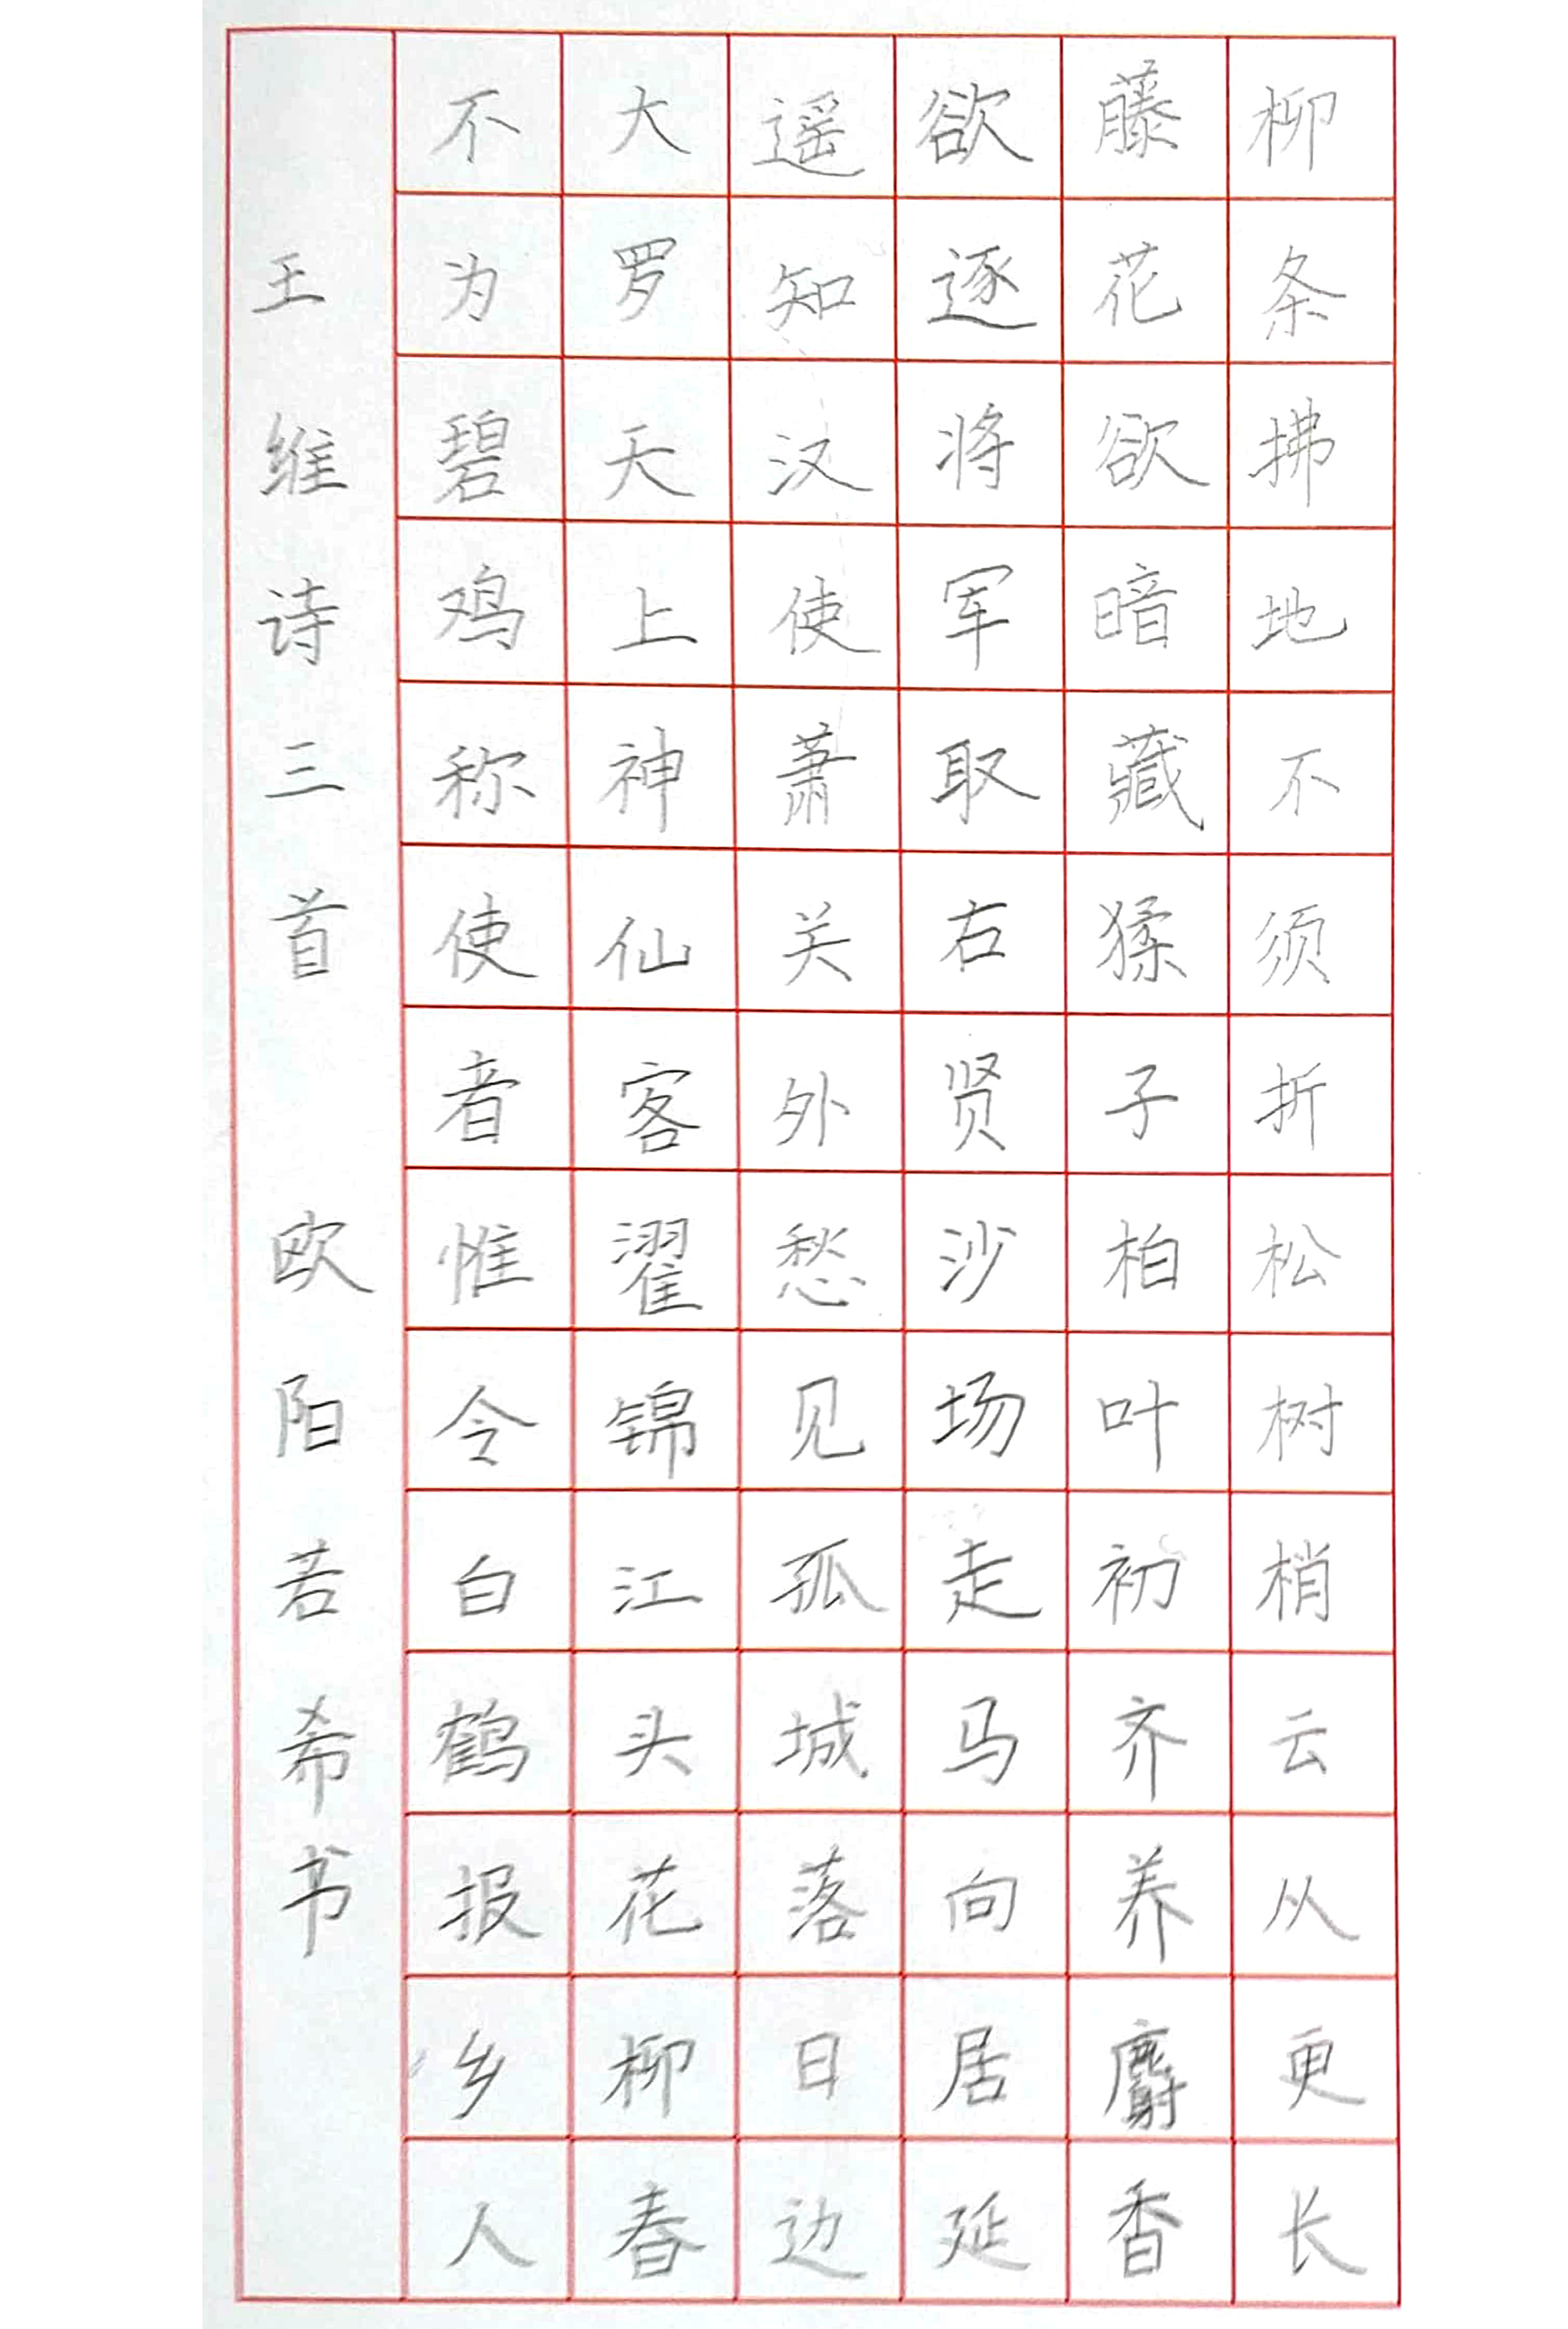 柳条拂地不须折松树梢云从更长
藤花欲暗藏猱子柏叶初齐养麝香
欲逐将军取右贤沙场走马向居延
遥知汉使萧关外愁见孤城落日边
大罗天上神仙客濯锦江头花柳春
不为碧鸡称使者惟令白鹤报乡人
王维诗三首 欧阳若希书